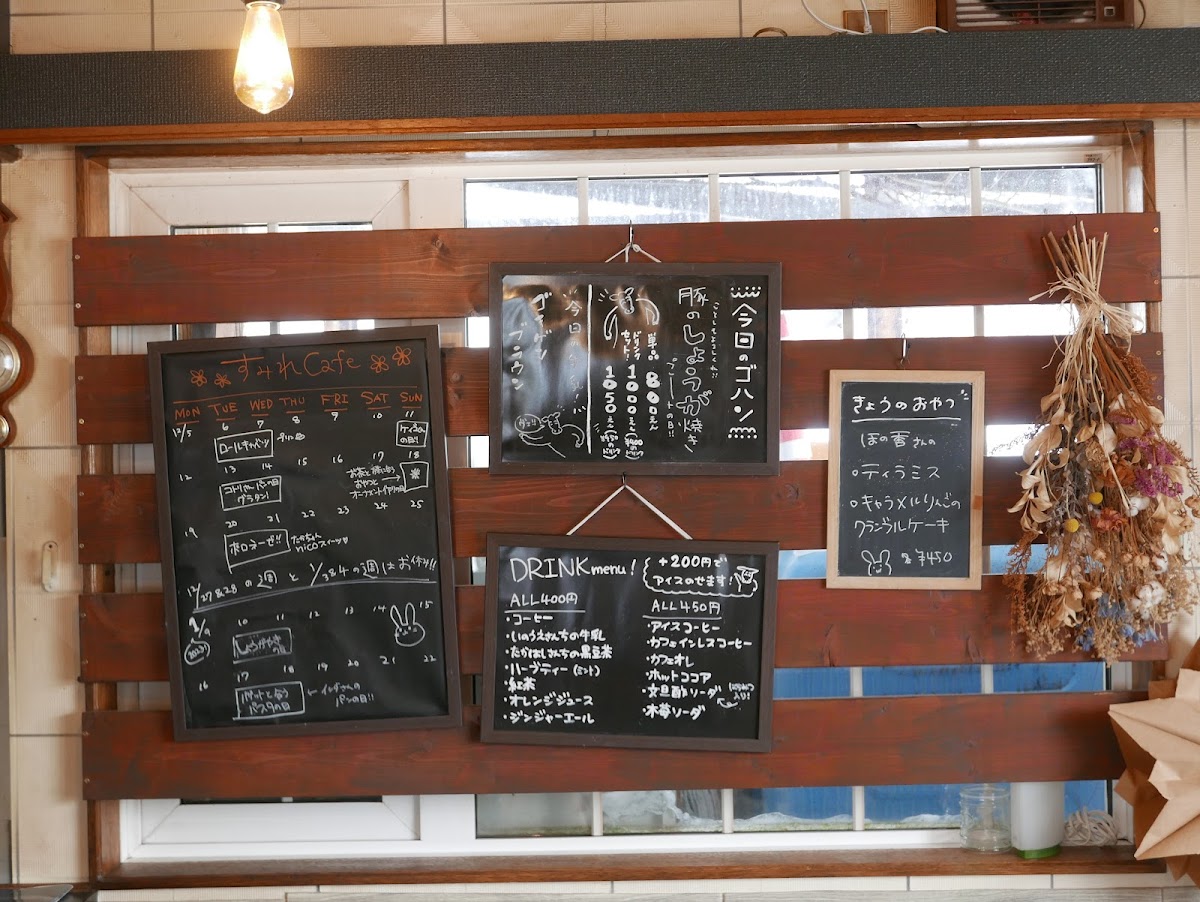 すみれCafe
MON TUE WED THU FRI SAT SUN
12/5 6 7 8 9 10 11
ロールキャベツ
の日!!
12 13 14 15 16 17 18
グラタン!
おやつと
19 20 21 22 23 24 25
ボロネーゼ!!
nicoスイーツ
12/27&28の週と1/3&4の週はお休み!!
1/9 10 11 12 13 14 15
2023!
しょうがやきの日
16 17 18 19 20 21 22
パンと合う
パスタの日
パンの日!!
今回のゴハン
豚のしょうが焼き
プレートの日!!
単品 800えん
ドリンクセット 1000えん
1050えん
今回の
ゴールデン
ブラウン
DRINK menu!
+200円で
アイスのせます!
ALL400円
・コーヒー
・いのうえさんちの牛乳
・たかはしみちの黒豆茶
・ハーブティー(ミント)
・紅茶
・オレンジジュース
・ジンジャーエール
ALL 450円
・アイスコーヒー
・カフェインレスコーヒー
・カフェオレ
・ホットココア
・文旦酢ソーダ
・木苺ソーダ
きょうのおやつ
ほの香さんの
・ティラミス
・キャラメルりんごの
クランブルケーキ
各¥450